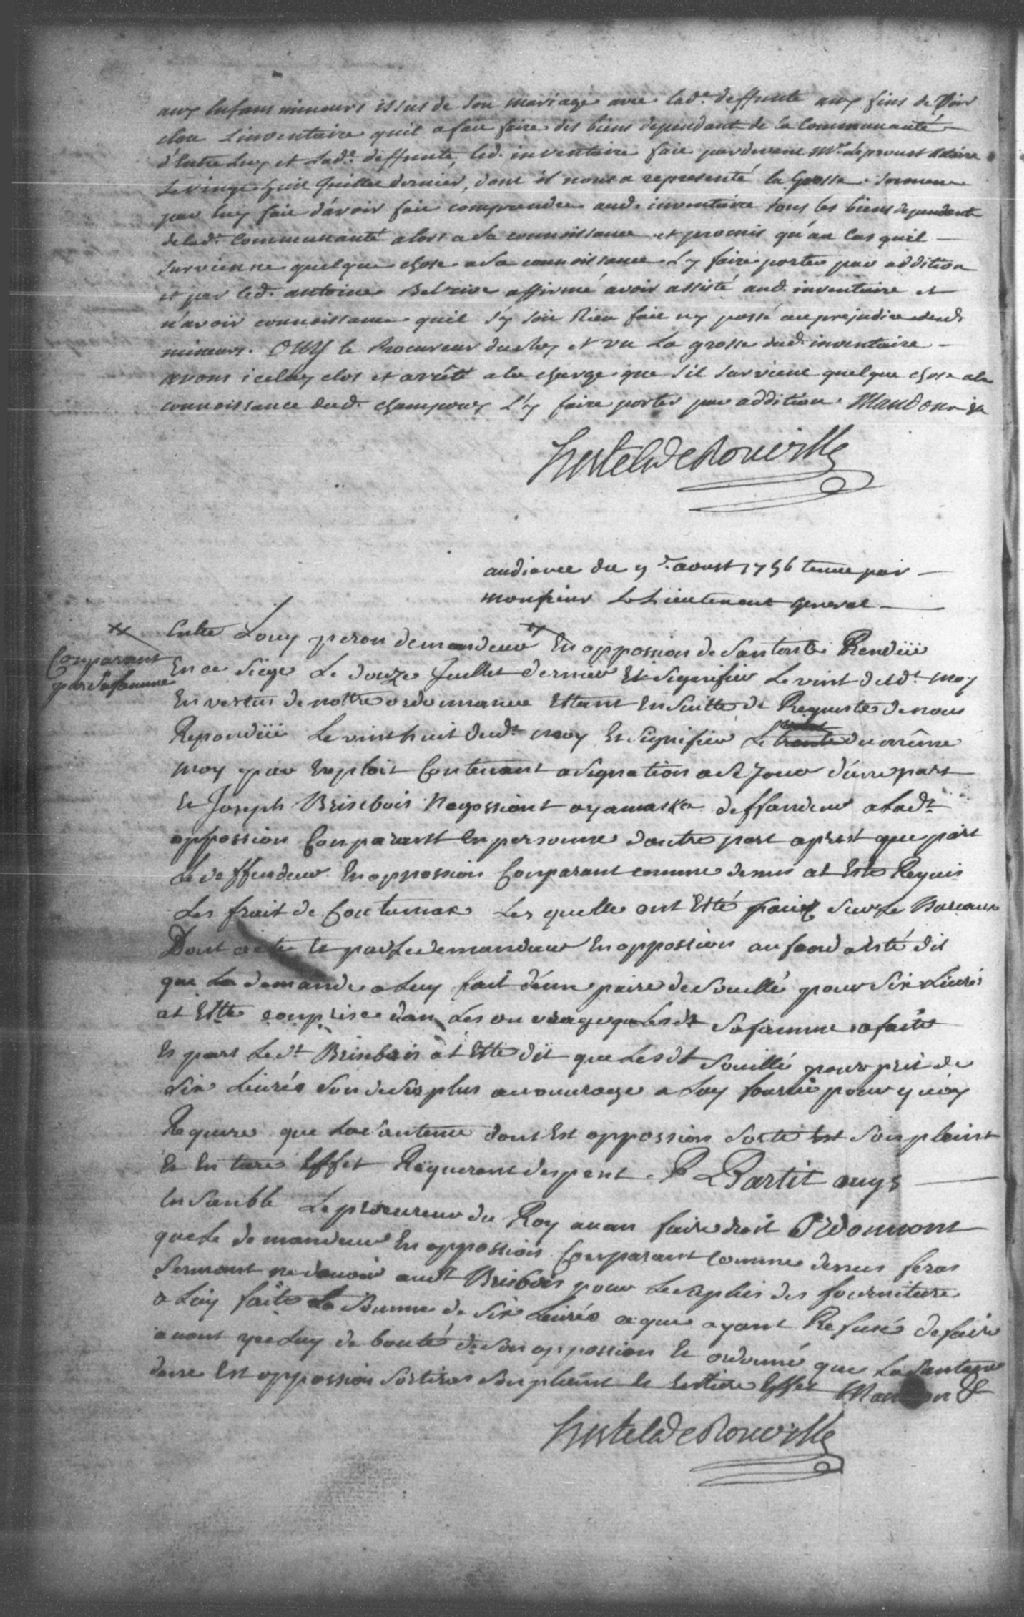 aux Enfans mineurs issus de son mariage avec lade. deffunte aux fins de voir
clore Linventaire quil a fait faire des biens dependant de la Communauté
d'Entre Luy et Lade. deffunte, led. inventaire fait pardevant Me. Leproust notaire
Le vingt huit Juillet dernier, dont il nous a representé la Grosse. Serment
par luy fait d'avoir fait comprendre aud. inventaire tous les biens dependant
de lade. Communauté alors a sa connoissance et promis qu'au cas quil
survienne quelque chose a sa connoissance L'y faire porter par addition
et par led. antoine affirmé avoir assisté aud. inventaire et
n'avoir connoissance quil s'y soit Rien fait ny passé au prejudice desd.
mineurs. OUY le Procureur du Roy et vu La grosse dud. inventaire
avons icelui clos et arrêté a la charge que s'il survient quelque chose a la
connoissance dud. champoux L'y faire porter par addition. Mandons &
Hertel de Rouville
audience du 9e. aoust 1756 tenue par
monsieur Le Lieutenant General
Entre Louy peron demandeur en opposion de Santente Rendüe
Comparant
par Safamme
En ce Siege Le douze Juillet dernier Et Signifier Le vint dudt. moy
En vertus de nottre ordonnance Ettant En Suitte de Requeste de nous
Repondüe Le vint huit dudt. moy Et Signifier Le trente du même
moy par Exploit Contenant asignation a ce Jour d'une part
Et Joseph Brisebois Negossiant a yamaska deffandeur a Ladt.
oppossion Comparant en personne d'autre part apres que part
Le deffendeur En opposion Comparant comme dessus at Este Requis
Les frait de Contumax Les quelle ont Esté paiez Sur Le Bureaux
Dont acte et par Le demandeur En oppossion au fond a esté dit
que La demande a Luy fait d'une paire de Souillé pour Six Livres
at Ette comprise dan Les ouvrages que Sa famme a faite
Et part Le dt. Brisebois at Ette dit que Lesdt Souillé pour prix de
Six Livres Son de Surplus au ouvrage a Luy fournie pour quoy
Requere que La Santence dont Est oppossion Sorte Son pleint
Et Entiere Effet Requerant despent. Partit ouys
En Samble Le procureur du Roy avan faire droit Ordonnont
que Le demandeur En oppossion Comparant comme dessus feras
Serment ne devoir audt Brisbois pour Le Surplus des fourniture
a Luy faite La Somme de Six Livres a que ayant Refusé de faire
avont Luy de bouté de Son oppossion Et ordonné que La Santance
donc Est oppossion Sortiras Son pleint Et Entiere Effet Mandon &
Hertel de Rouville